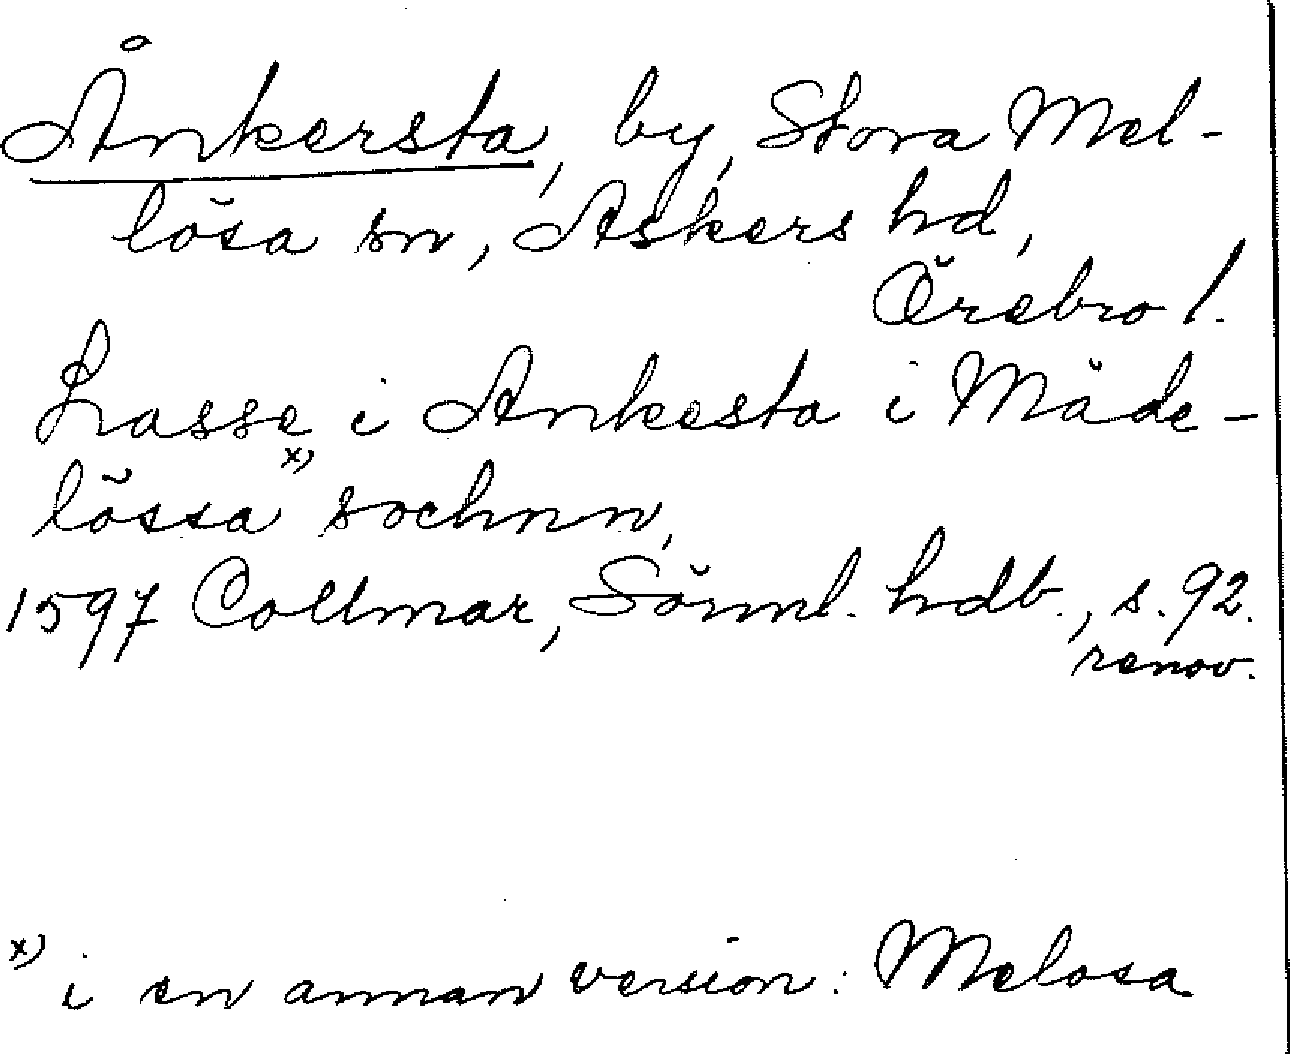 Ånkersta, by, Stora Mel-
lösa sn, Askers hd,
Örebro l.
Lasse i Ankesta i Mäde-
lössa x) sochnn,
1597 Collmar, Sörml. hdb., s. 92.
renov.
x) i en annan version: Melosa